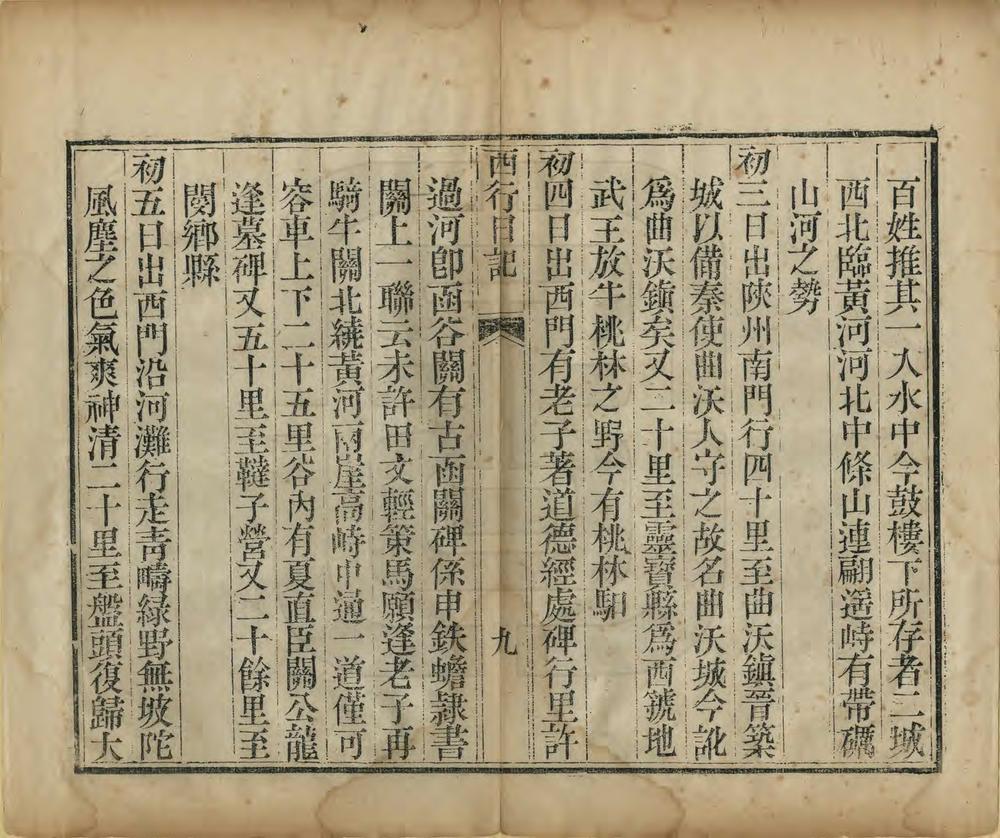 百姓推其一入水中今鼓樓下所存者二城
西北臨黃河河北中條山連翩遥峙有帶礪
山河之勢
初三日出陜州南門行四十里至曲沃鎮晉築
城以備秦使曲沃人守之故名曲沃城今訛
爲曲沃鎮矣又二十里至靈寶縣爲西虢地
武王放牛桃林之野今有桃林馹
初四日出西門有老子著道德經處碑行里許
西行日記
九
過河卽函谷關有古函關碑係申鉄蟾隷書
關上一聯云未許田文輕策馬願逢老子再
騎牛關北繞黃河兩崖高峙中通一道僅可
容車上下二十五里谷內有夏直臣關公龍
逢墓碑又五十里至韃子營又二十餘里至
閿鄉縣
初五日出西門沿河灘行走靑疇綠野無坡陀
風塵之色氣爽神清二十里至盤頭復歸大